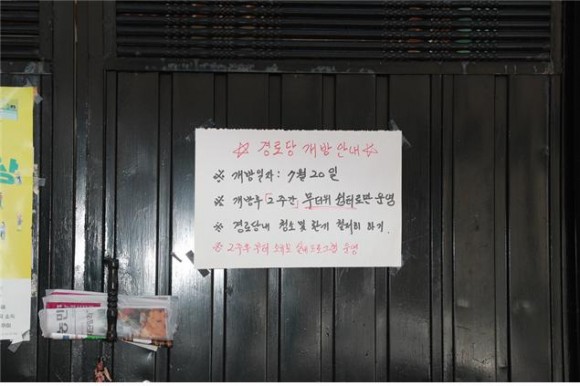 ☆ 경로당 개방안내 ☆
※ 개방일자 : 7월 20일
※ 개방후 「2주간」 무더위 쉼터로만 운영
※ 경로당내 청소 및 환기 철저히 하기.
※ 2주후 부터 프로그램 운영
상
농민